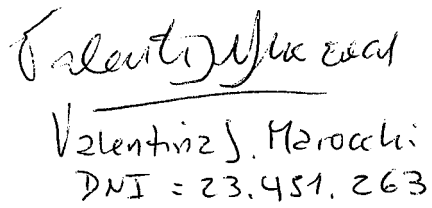 Valentina S. Marocchi
DNI = 23.451.263